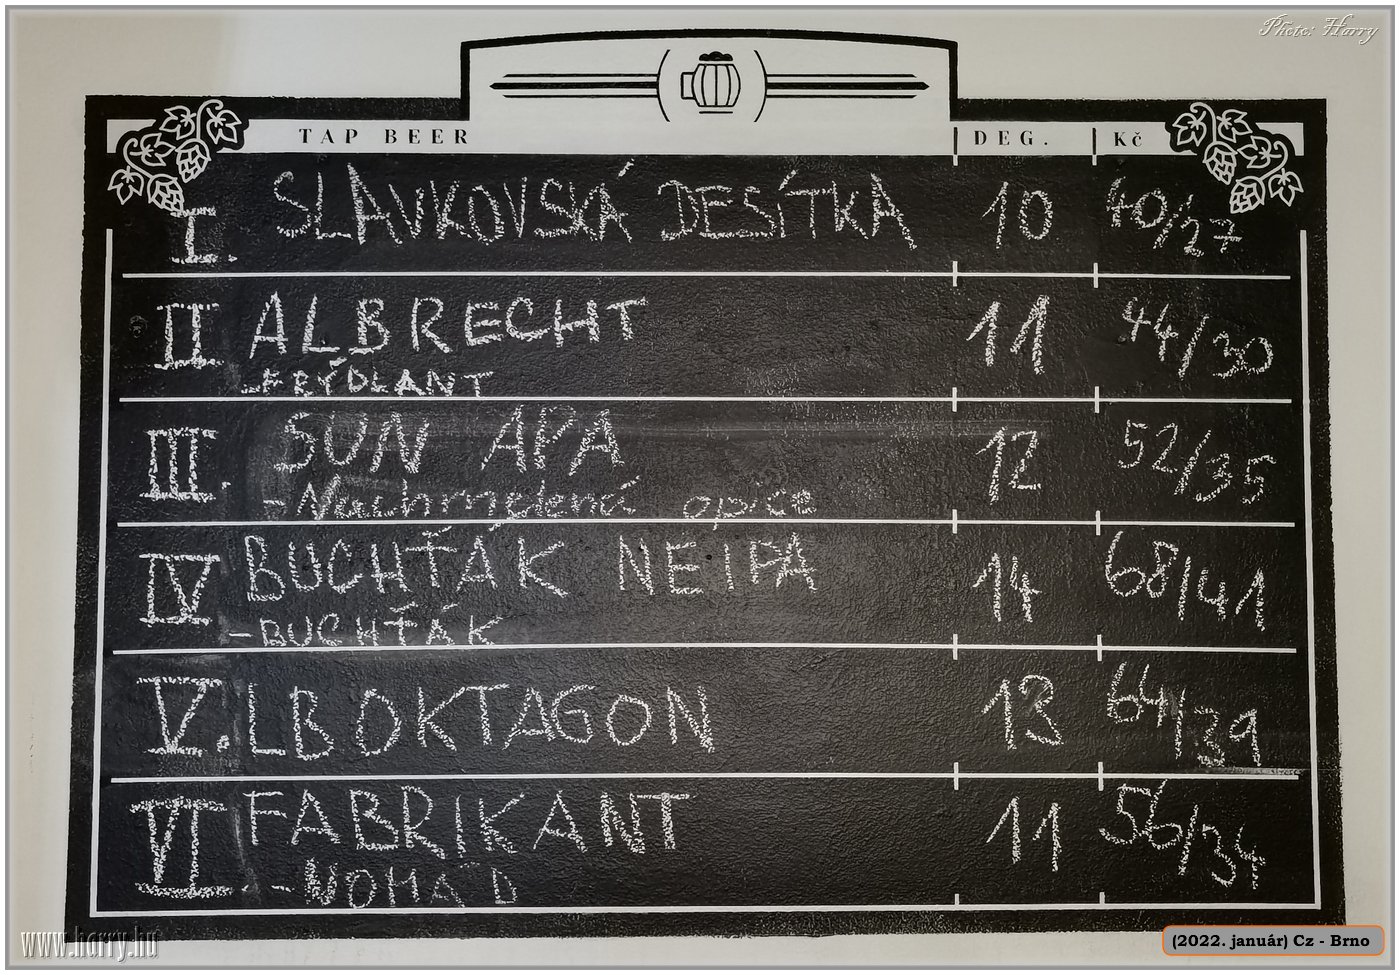 Photo: Harry
TAP BEER DEG. Kč
I. SLAVKOVSKÁ DESÍTKA 10 40/27
II ALBRECHT 11 44/30
-FRÝDLANT
III. SUN APA 12 52/35
-Nachmelená opice
IV BUCHŤÁK NEIPA 14 68/41
-BUCHŤÁK
V. LB OKTAGON 13 64/39
VI. FABRIKANT 11 56/34
-NOMÁD
www.harry.hu
(2022. január) Cz - Brno